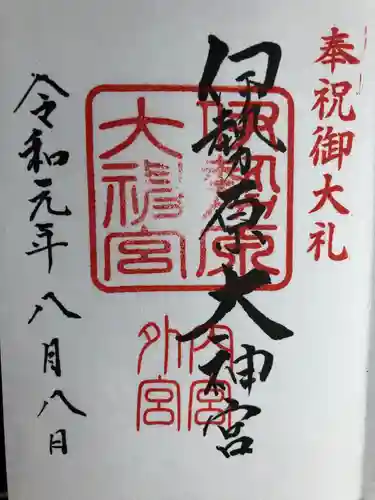 奉祝御大礼
伊勢原大神宮
伊勢原
大神宮
内宮
外宮
令和元年八月八日